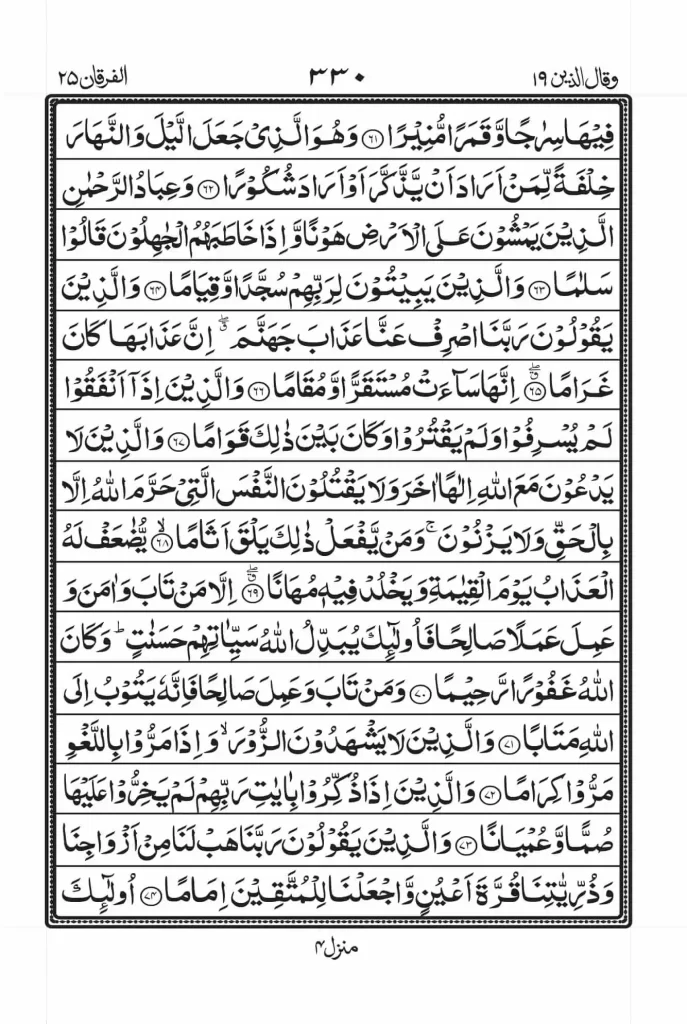 وقال الذین ۱۹ ۳۳۰ الفرقان ۲۵
فِیْهَا سِرٰجًا وَّ قَمَرًا مُّنِیْرًا ﴿۶۱﴾ وَ هُوَ الَّذِیْ جَعَلَ الَّیْلَ وَ النَّهَارَ
خِلْفَةً لِّمَنْ اَرَادَ اَنْ یَّذَّكَّرَ اَوْ اَرَادَ شُكُوْرًا ﴿۶۲﴾ وَ عِبَادُ الرَّحْمٰنِ
الَّذِیْنَ یَمْشُوْنَ عَلَی الْاَرْضِ هَوْنًا وَّ اِذَا خَاطَبَهُمُ الْجٰهِلُوْنَ قَالُوْا
سَلٰمًا ﴿۶۳﴾ وَ الَّذِیْنَ یَبِیْتُوْنَ لِرَبِّهِمْ سُجَّدًا وَّ قِیَامًا ﴿۶۴﴾ وَ الَّذِیْنَ
یَقُوْلُوْنَ رَبَّنَا اصْرِفْ عَنَّا عَذَابَ جَهَنَّمَ ۖۗ اِنَّ عَذَابَهَا كَانَ
غَرَامًا ﴿۶۵﴾ۖۗ اِنَّهَا سَآءَتْ مُسْتَقَرًّا وَّ مُقَامًا ﴿۶۶﴾ وَ الَّذِیْنَ اِذَاۤ اَنْفَقُوْا
لَمْ یُسْرِفُوْا وَ لَمْ یَقْتُرُوْا وَ كَانَ بَیْنَ ذٰلِكَ قَوَامًا ﴿۶۷﴾ وَ الَّذِیْنَ لَا
یَدْعُوْنَ مَعَ اللّٰهِ اِلٰهًا اٰخَرَ وَ لَا یَقْتُلُوْنَ النَّفْسَ الَّتِیْ حَرَّمَ اللّٰهُ اِلَّا
بِالْحَقِّ وَ لَا یَزْنُوْنَ ۚ وَ مَنْ یَّفْعَلْ ذٰلِكَ یَلْقَ اَثَامًا ﴿۶۸﴾ۙ یُّضٰعَفْ لَهُ
الْعَذَابُ یَوْمَ الْقِیٰمَةِ وَ یَخْلُدْ فِیْهٖ مُهَانًا ﴿۶۹﴾ۖۗ اِلَّا مَنْ تَابَ وَ اٰمَنَ وَ
عَمِلَ عَمَلًا صَالِحًا فَاُولٰٓىِٕكَ یُبَدِّلُ اللّٰهُ سَیِّاٰتِهِمْ حَسَنٰتٍ ؕ وَ كَانَ
اللّٰهُ غَفُوْرًا رَّحِیْمًا ﴿۷۰﴾ وَ مَنْ تَابَ وَ عَمِلَ صَالِحًا فَاِنَّهٗ یَتُوْبُ اِلَی
اللّٰهِ مَتَابًا ﴿۷۱﴾ وَ الَّذِیْنَ لَا یَشْهَدُوْنَ الزُّوْرَ ۙ وَ اِذَا مَرُّوْا بِاللَّغْوِ
مَرُّوْا كِرَامًا ﴿۷۲﴾ وَ الَّذِیْنَ اِذَا ذُكِّرُوْا بِاٰیٰتِ رَبِّهِمْ لَمْ یَخِرُّوْا عَلَیْهَا
صُمًّا وَّ عُمْیَانًا ﴿۷۳﴾ وَ الَّذِیْنَ یَقُوْلُوْنَ رَبَّنَا هَبْ لَنَا مِنْ اَزْوَاجِنَا
وَ ذُرِّیّٰتِنَا قُرَّةَ اَعْیُنٍ وَّ اجْعَلْنَا لِلْمُتَّقِیْنَ اِمَامًا ﴿۷۴﴾ اُولٰٓىِٕكَ
منزل ۴